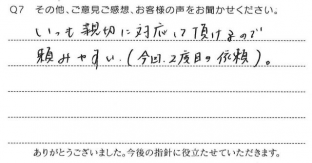 Q7 その他、ご意見ご感想、お客様の声をお聞かせください。
いつも親切に対応して頂けるので
頼みやすい。(今回、2度目の依頼)。
ありがとうございました。今後の指針に役立たせていただきます。